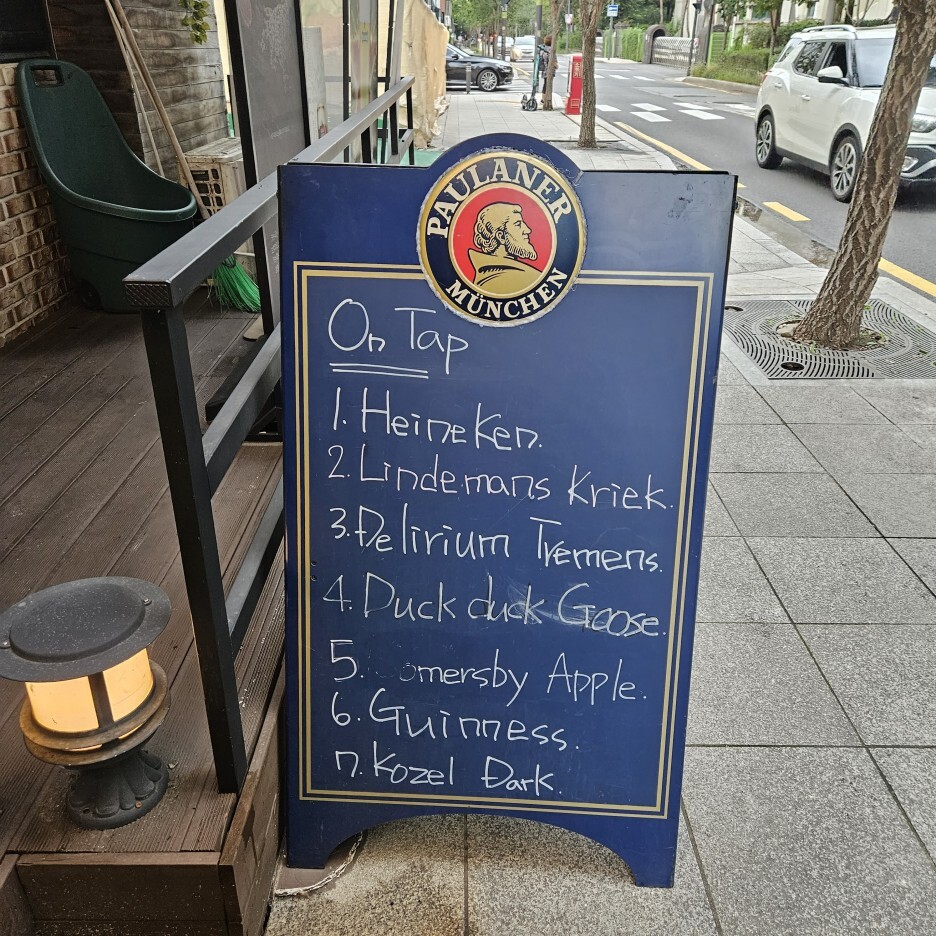 PAULANER
MÜNCHEN
On Tap
1. Heineken.
2. Lindemans Kriek.
3. Delirium Tremens.
4. Duck duck Goose.
5. omersby Apple.
6. Guinness.
7. Kozel Dark.